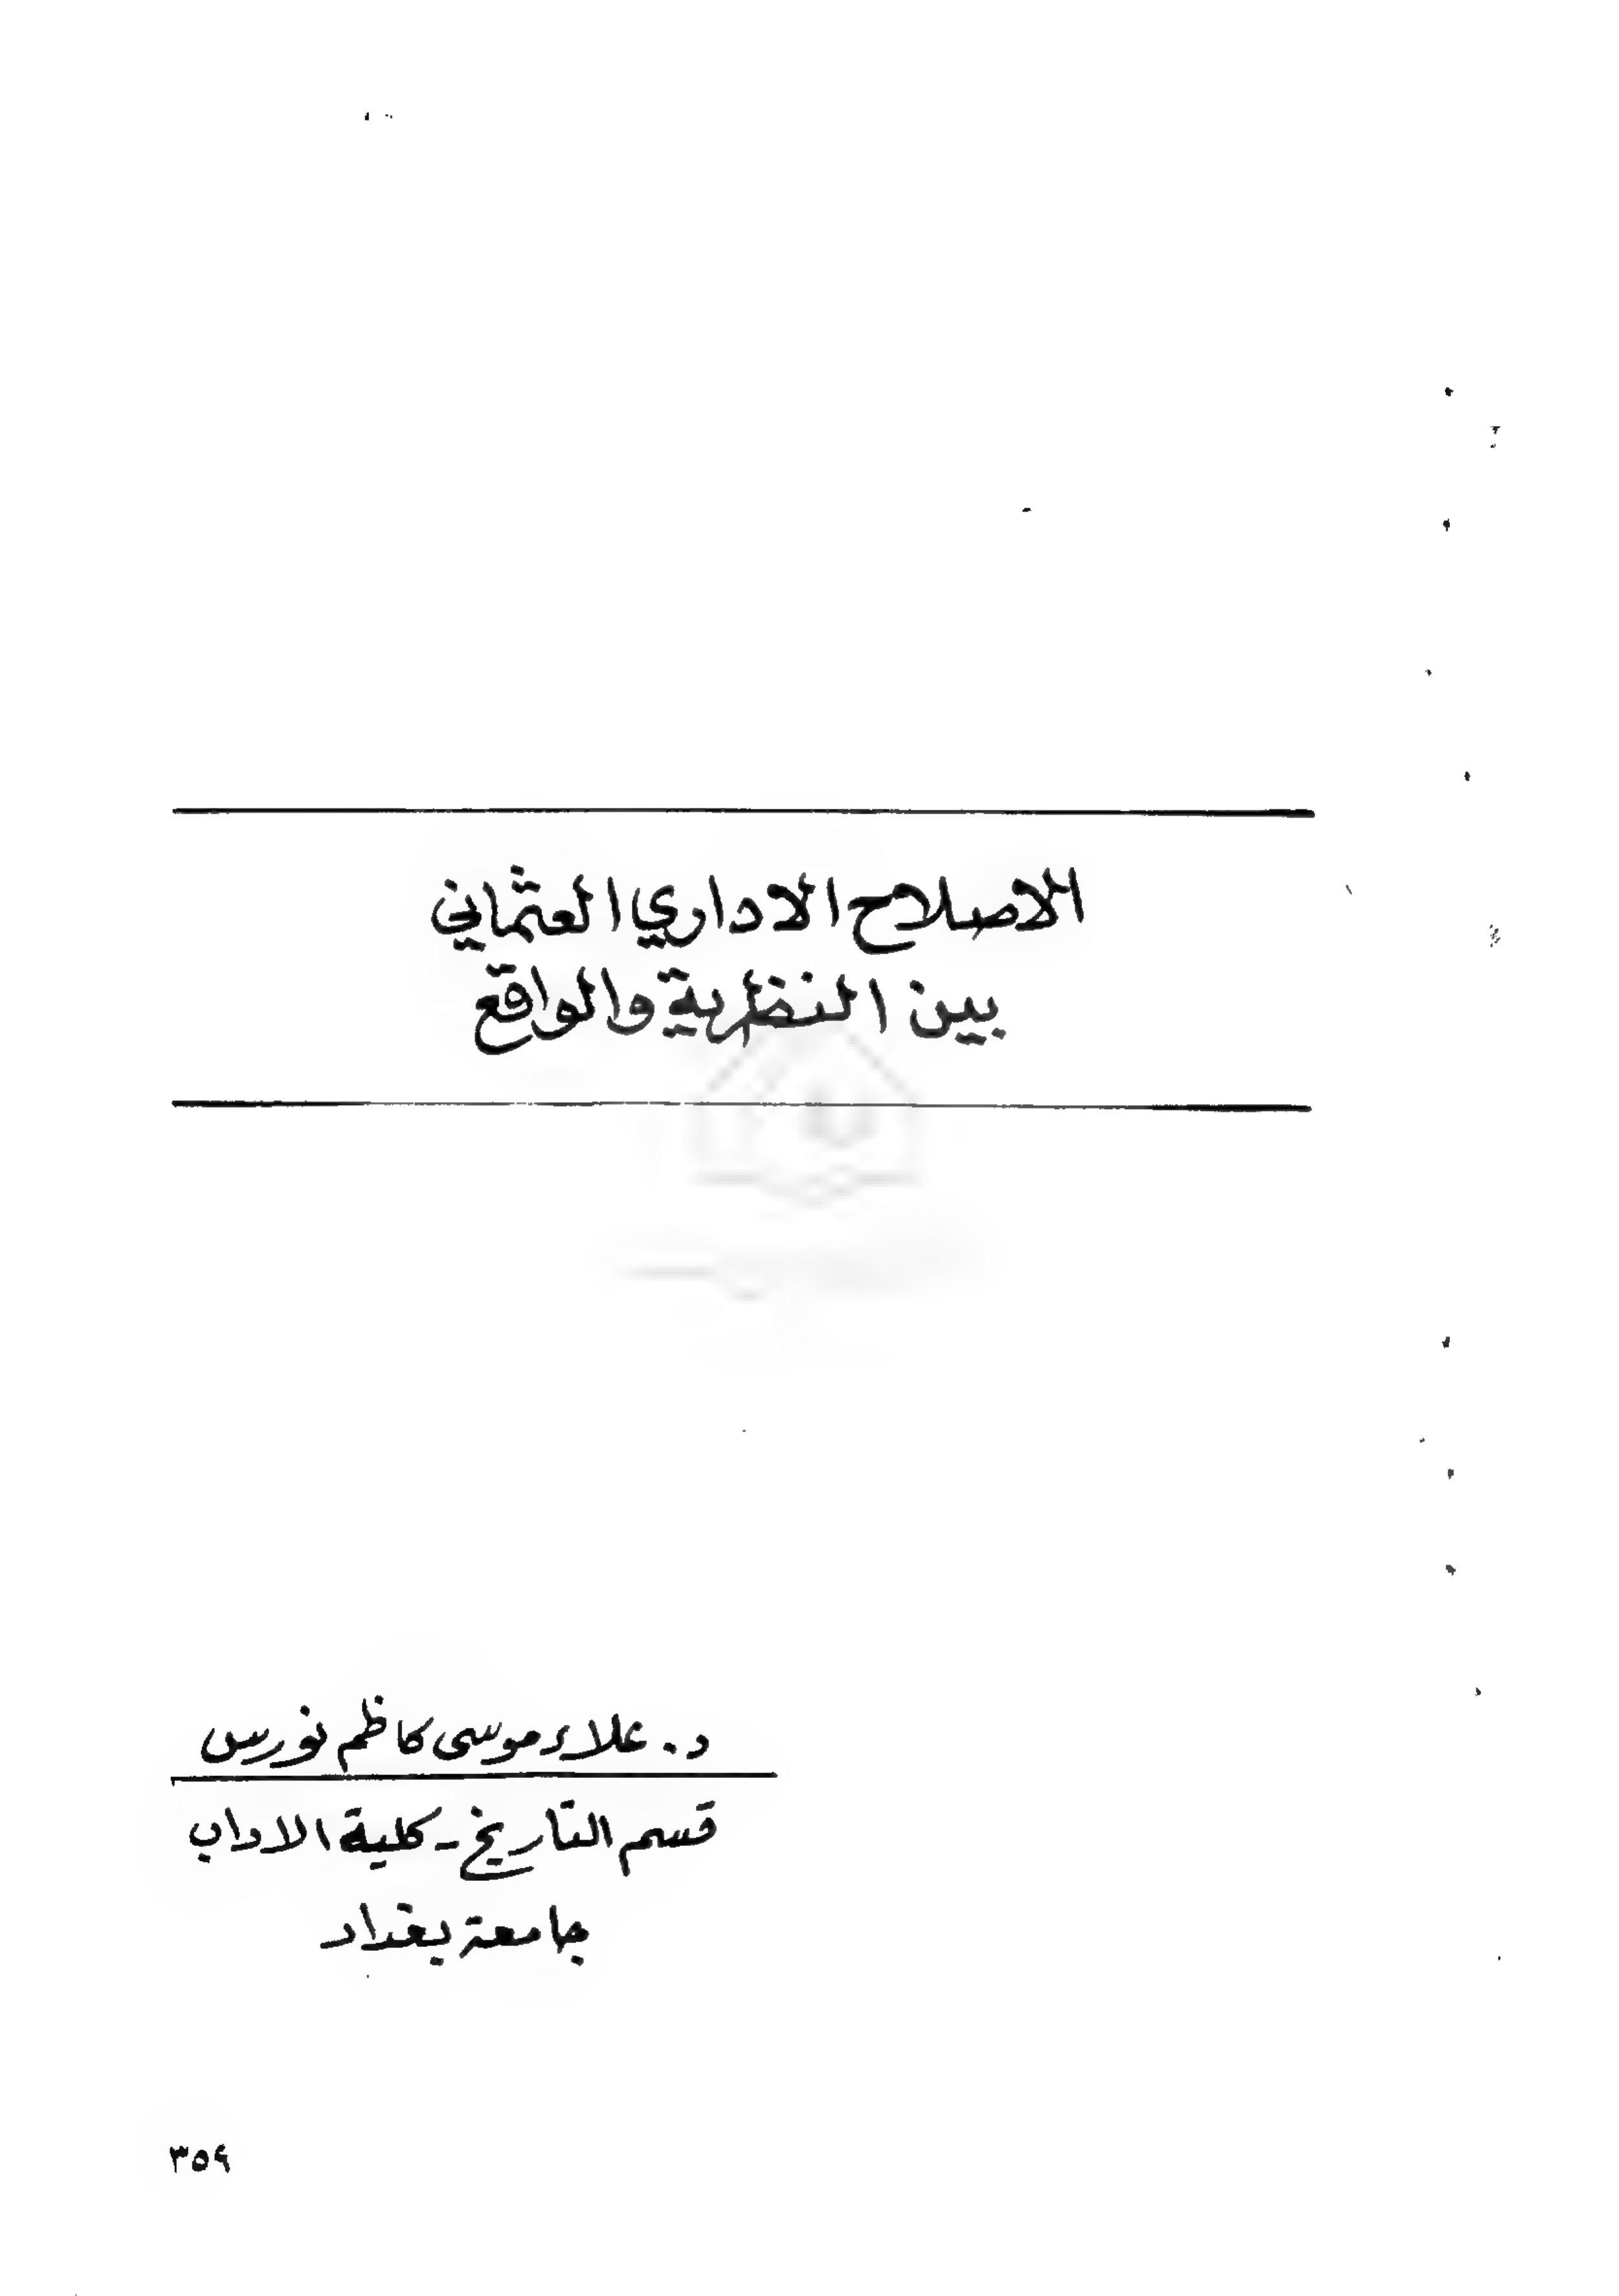 الاصلاح الاداري العثماني
بين النظرية والواقع
د. علاء موسى كاظم نورس
قسم التاريخ - كلية الاداب
جامعة بغداد
٣٥٩